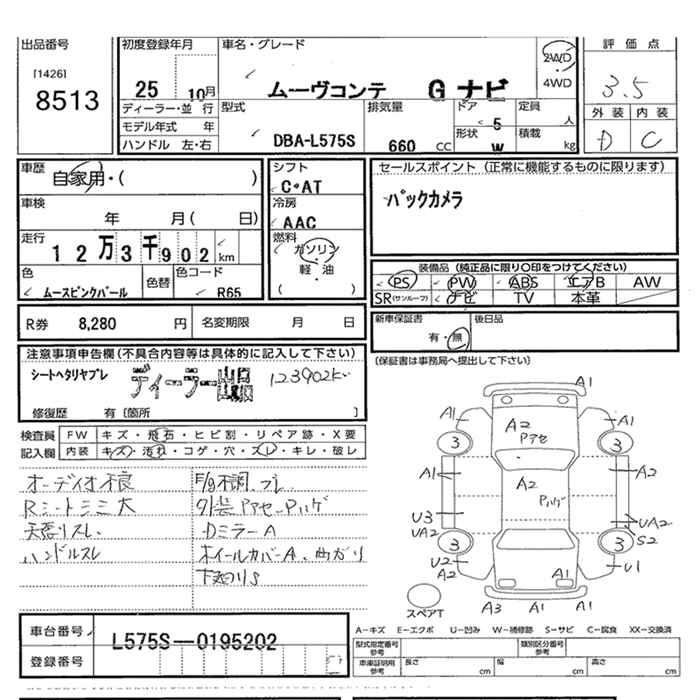 出品番号
[1426]
8513
初度登録年月
25 10月
ディーラー・並 行
モデル年式 年
ハンドル 左・右
車名・グレード
ムーヴコンテ G ナビ
2WD
・
4WD
型式
DBA-L575S
排気量
660 CC
ドア
5
形状
W
定員
人
積載
kg
評 価 点
3.5
外 装 内 装
D C
車歴
自家用・( )
車検
年 月( 日)
走行
12万3千902 km
色
ムースピンクパール
色替
色コード
R65
シフト
C・AT
冷房
AAC
燃料
ガソリン
・
軽・油
( )
セールスポイント (正常に機能するものに限ります)
バックカメラ
装備品 (純正品に限り〇印をつけてください)
PS PW ABS エアB AW
SR(サンルーフ) ナビ TV 本革
R券 8,280 円 名変期限 月 日
新車保証書
有・無
後日品
(保証書は事務局へ提出して下さい)
注意事項申告欄(不具合内容等は具体的に記入して下さい)
シートヘタリヤブレ ディーラー出品 123902K
修復歴 有 [箇所 ]
検査員 FW キズ・飛石・ヒビ割・リペア跡・X要
記入欄 内装 キズ・汚れ・コゲ・穴・スレ・キレ・破レ
オーディオ不良
Rシートシミ大
天張リスレ、
ハンドルスレ
F/g不調、ブレ
外装アセ-Pハゲ
DミラーA
ホイールカバーA、曲がり
下廻りS
A1
A1
A2
Pアセ
A1
3
3
A1
A2
A2
Pハゲ
U3
UA2
UA2
S2
3
3
U2
A2
U1
A1
スペアT
A3 A1 A1
車台番号
L575S-0195202
登録番号
A-キズ E-エクボ U-凹み W-補修跡 S-サビ C-腐食 XX-交換済
型式指定番号
参考
類別区分番号
参考
車庫証明用
参考
長さ cm
幅 cm
高さ cm